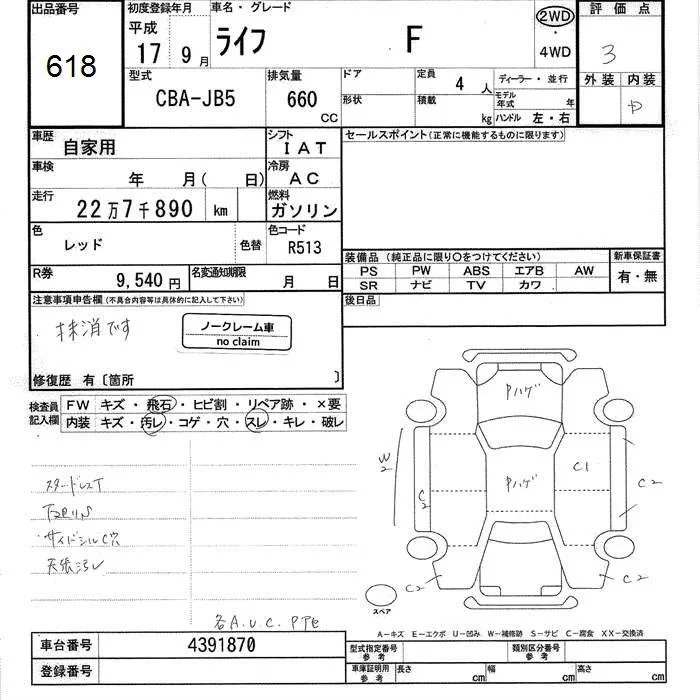 出品番号 618
初度登録年月 平成 17 9月
車名・グレード ライフ F
2WD
4WD
評価点 3
外装 内装
型式 CBA-JB5
排気量 660 CC
ドア
定員 4 人
形状
積載 kg
ディーラー・並行
モデル年式 年
ハンドル 左・右
車歴 自家用
シフト IAT
セールスポイント(正常に機能するものに限ります)
車検 年 月( 日)
冷房 AC
走行 22万7千890 km
燃料 ガソリン
色 レッド 色替
色コード R513
R券 9,540円
名変通知期限 月 日
装備品 (純正品に限り〇をつけてください)
PS PW ABS エアB AW
SR ナビ TV カワ
新車保証書
有・無
後日品
注意事項申告欄(不具合内容等は具体的に記入して下さい)
抹消です
ノークレーム車
no claim
修復歴 有〔箇所 〕
検査員記入欄
FW キズ・飛石・ヒビ割・リペア跡・×要
内装 キズ・汚レ・コゲ・穴・スレ・キレ・破レ
Pハゲ
Pハゲ
W2
C2
C1
C2
C2
C2
スペア
スタッドレスT
サイドシルC穴
天張汚レ
各A.U.C.
A－キズ E－エクボ U－凹み W－補修跡 S－サビ C－腐食 XX－交換済
車台番号 4391870
登録番号
型式指定番号 参考
類別区分番号 参考
車庫証明用 参考 長さ cm 幅 cm 高さ cm